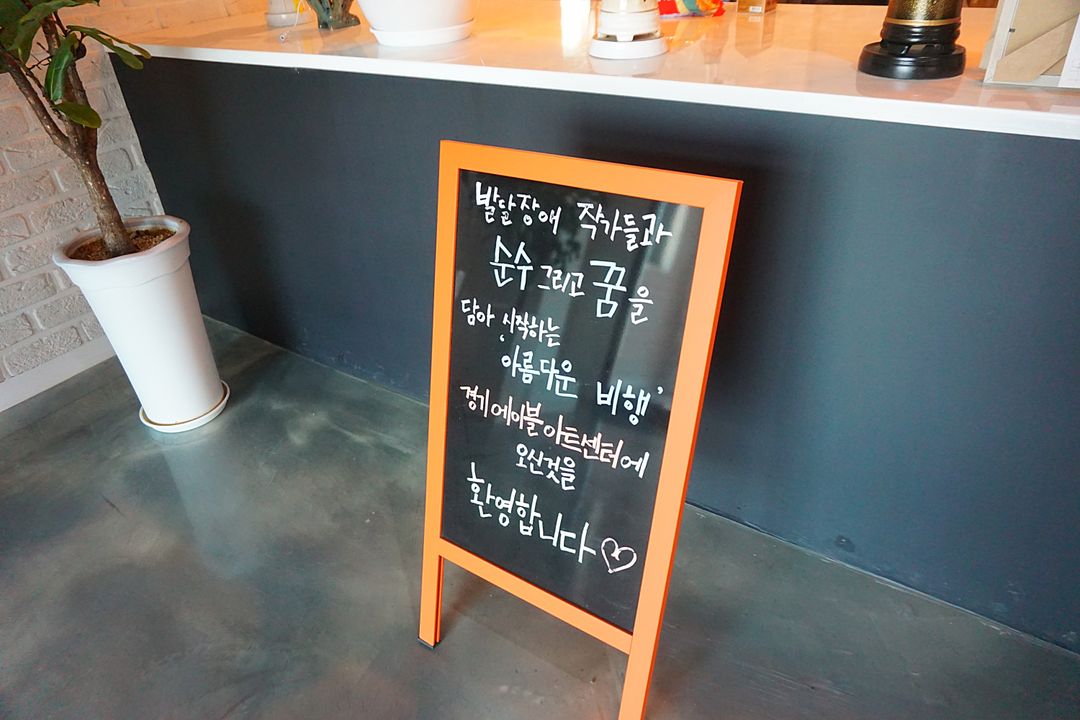 발달장애 작가들과
순수 그리고 꿈을
담아 '시작하는
아름다운 비행'
경기에이블아트센터에
오신것을
환영합니다♡